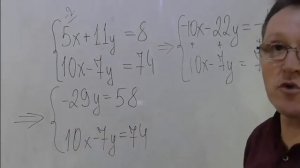 5x+11y=8
10x-7y=74
⇒ -10x-22y=-
10x-7y=
⇒ -29y=58
10x-7y=74